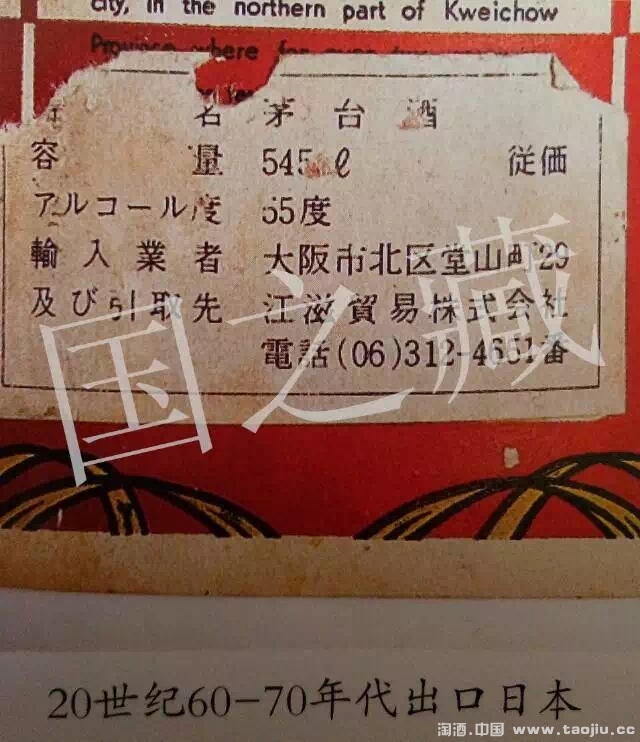 city, in the northern part of Kweichow
Province where for
名 茅台酒
容量 545 ℓ 従価
アルコール度 55度
輸入業者 大阪市北区堂山町29
及び引取先 江滋貿易株式会社
電話(06)312-4651番
国之藏
20世纪60-70年代出口日本
淘酒.中国 www.taojiu.cc